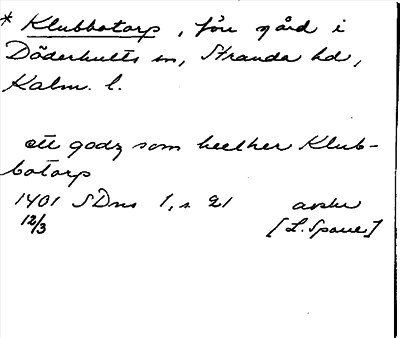 * Klubbotorp, förr gård i
Döderhults sn, Stranda hd,
Kalm. l.
ett godz som heether Klub-
botorp
1401 SDns 1, s. 21 avskr
12/3 [L. Sparre]